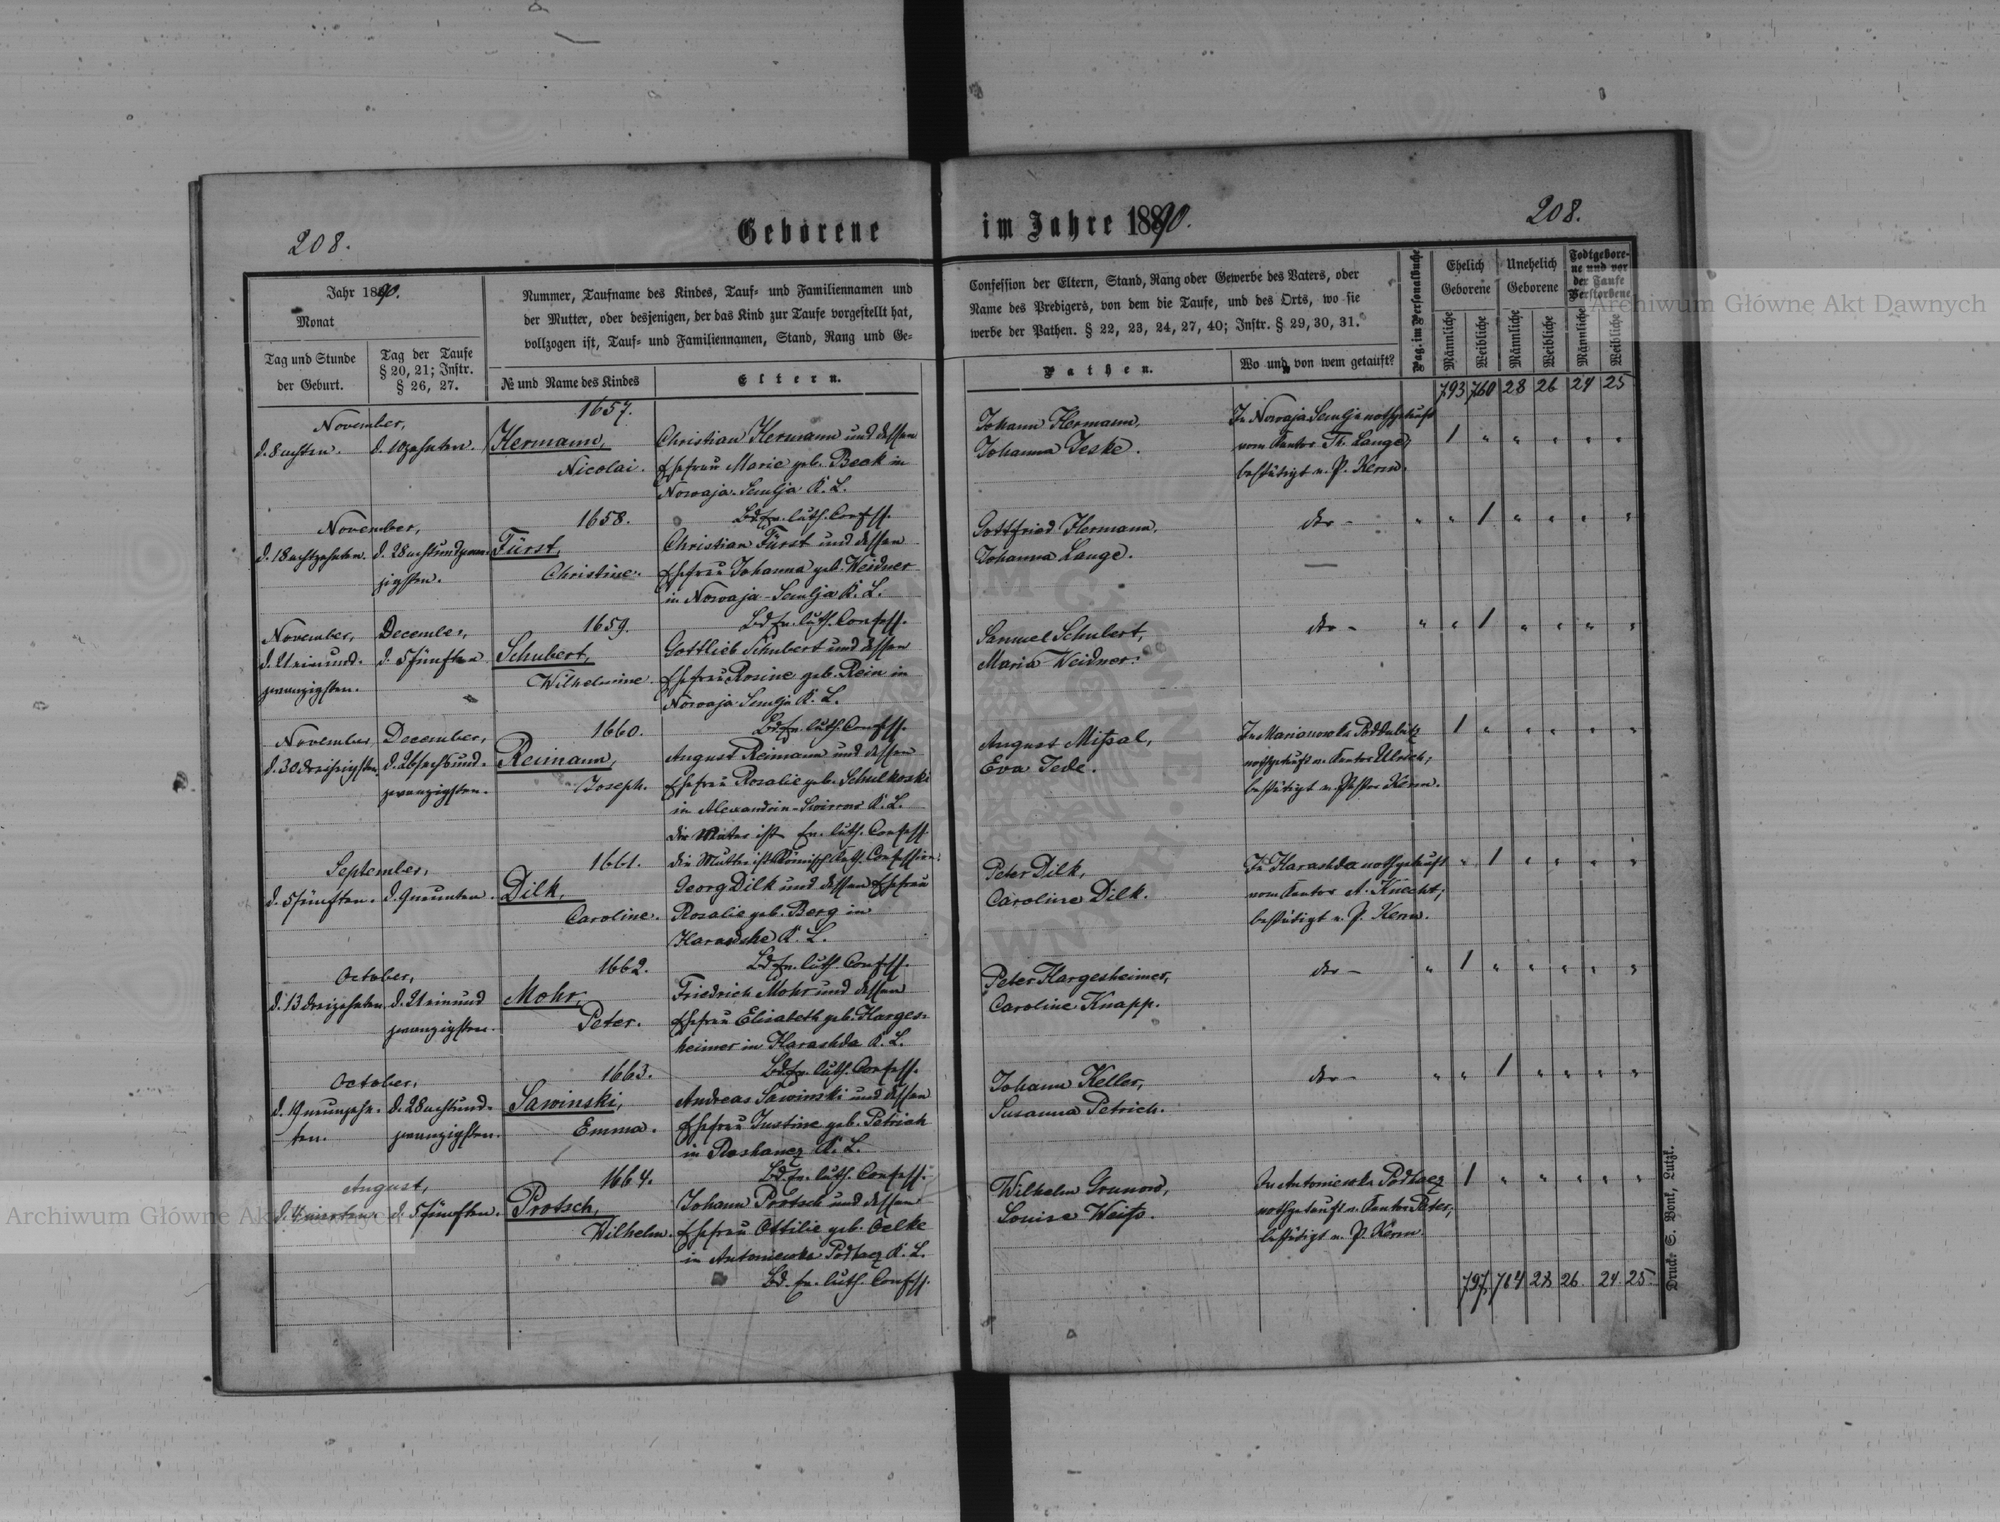 208.
Geborene
im Jahre 1890.
208.
Jahr 1890.
Monat
Tag und Stunde
der Geburt.
Tag der Taufe
§ 20, 21; Instr.
§ 26, 27.
Nummer, Taufname des Kindes, Tauf- und Familiennamen und
der Mutter, oder desjenigen, der das Kind zur Taufe vorgestellt hat,
vollzogen ist, Tauf- und Familiennamen, Stand, Rang und Ge-
№ und Name des Kindes
Eltern.
Confession der Eltern, Stand, Rang oder Gewerbe des Vaters, oder
Name des Predigers, von dem die Taufe, und des Orts, wo sie
werbe der Pathen. § 22, 23, 24, 27, 40; Instr. § 29, 30, 31.
Pathen.
Wo und von wem getauft?
Pag. im Personalbuche
Ehelich
Geborene
Unehelich
Geborene
Todtgebore-
ne und vor
der Taufe
Verstorbene
Männliche
Weibliche
Männliche
Weibliche
Männliche
Weibliche
793 760 28 26 24 25
November,
d. 8 achten.
d. 10 zehnten.
1657.
Hermann,
Nicolai.
Christian Hermann und dessen
Ehefrau Marie geb. Beck in
Nowaja-Semlja K. L.
Bd. Ev. luth. Confess.
Johann Hermann,
Johanna Jeske.
In Nowaja Semlja nothgetauft
vom Kantor Th. Lange,
bestätigt v. P. Kern.
1 " " " " "
November,
d. 18 achtzehnten.
d. 28 achtundzwan-
zigsten.
1658.
Fürst,
Christine.
Christian Fürst und dessen
Ehefrau Johanna geb. Weidner
in Nowaja-Semlja K. L.
Bd. Ev. luth. Confess.
Gottfried Hermann,
Johanna Lange.
dto -
" " 1 " " " "
November,
d. 21 einund-
zwanzigsten.
December,
d. 5 fünften
1659.
Schubert,
Wilhelmine
Gottlieb Schubert und dessen
Ehefrau Rosine geb. Rein in
Nowaja Semlja K. L.
Bd. Ev. luth. Confess.
Samuel Schubert,
Maria Weidner.
dto -
" " 1 " " " "
November
d. 30 dreißigsten
December,
d. 26 sechsund-
zwanzigsten.
1660.
Reimann,
Joseph.
August Reimann und dessen
Ehefrau Rosalie geb. Schulkoski
in Alexandrin-Swirow K. L.
der Vater ist Ev. luth. Confess.
die Mutter ist Römisch Kath. Confession.
August Missal,
Eva Jede.
In Marianowka Poddubitz
nothgetauft v. Kantor Ulrich,
bestätigt v. Pastor Kern.
1 " " " " "
September,
d. 5 fünften.
d. 9 neunten.
1661.
Dilk,
Caroline.
Georg Dilk und dessen Ehefrau
Rosalie geb. Berg in
Harasche K. L.
Bd. Ev. luth. Confess.
Peter Dilk,
Caroline Dilk.
In Harashda nothgetauft
vom Kantor A. Knecht,
bestätigt v. P. Kern.
" 1 " " " "
October,
d. 13 dreizehnten.
d. 21 einund
zwanzigsten.
1662.
Mohr,
Peter.
Friedrich Mohr und dessen
Ehefrau Elisabeth geb. Karges-
heimer in Harashda K. L.
Bd. Ev. luth. Confess.
Peter Kargesheimer,
Caroline Knapp.
dto -
" 1 " " " " "
October,
d. 19 neunzehn-
ten.
d. 28 achtund-
zwanzigsten.
1663.
Sawinski,
Emma.
Andreas Sawinski und dessen
Ehefrau Justine geb. Petrich
in Roshanez K. L.
Bd. Ev. luth. Confess.
Johann Keller,
Susanna Petrich.
dto -
" " 1 " " " "
August,
d. 4 vierten.
d. 5 fünften.
1664.
Protsch,
Wilhelm.
Johann Protsch und dessen
Ehefrau Ottilie geb. Oelke
in Antoniewka Podhaez K. L.
Bd. Ev. luth. Confess.
Wilhelm Grunow,
Louise Weiss.
In Antoniewka Podhaez
nothgetauft v. Kantor Peter,
bestätigt v. P. Kern.
1 " " " " "
797 764 28 26 24 25
Druck S. Bont, Lutzk.
Archiwum Główne Akt Dawnych
Archiwum Główne Akt Dawnych